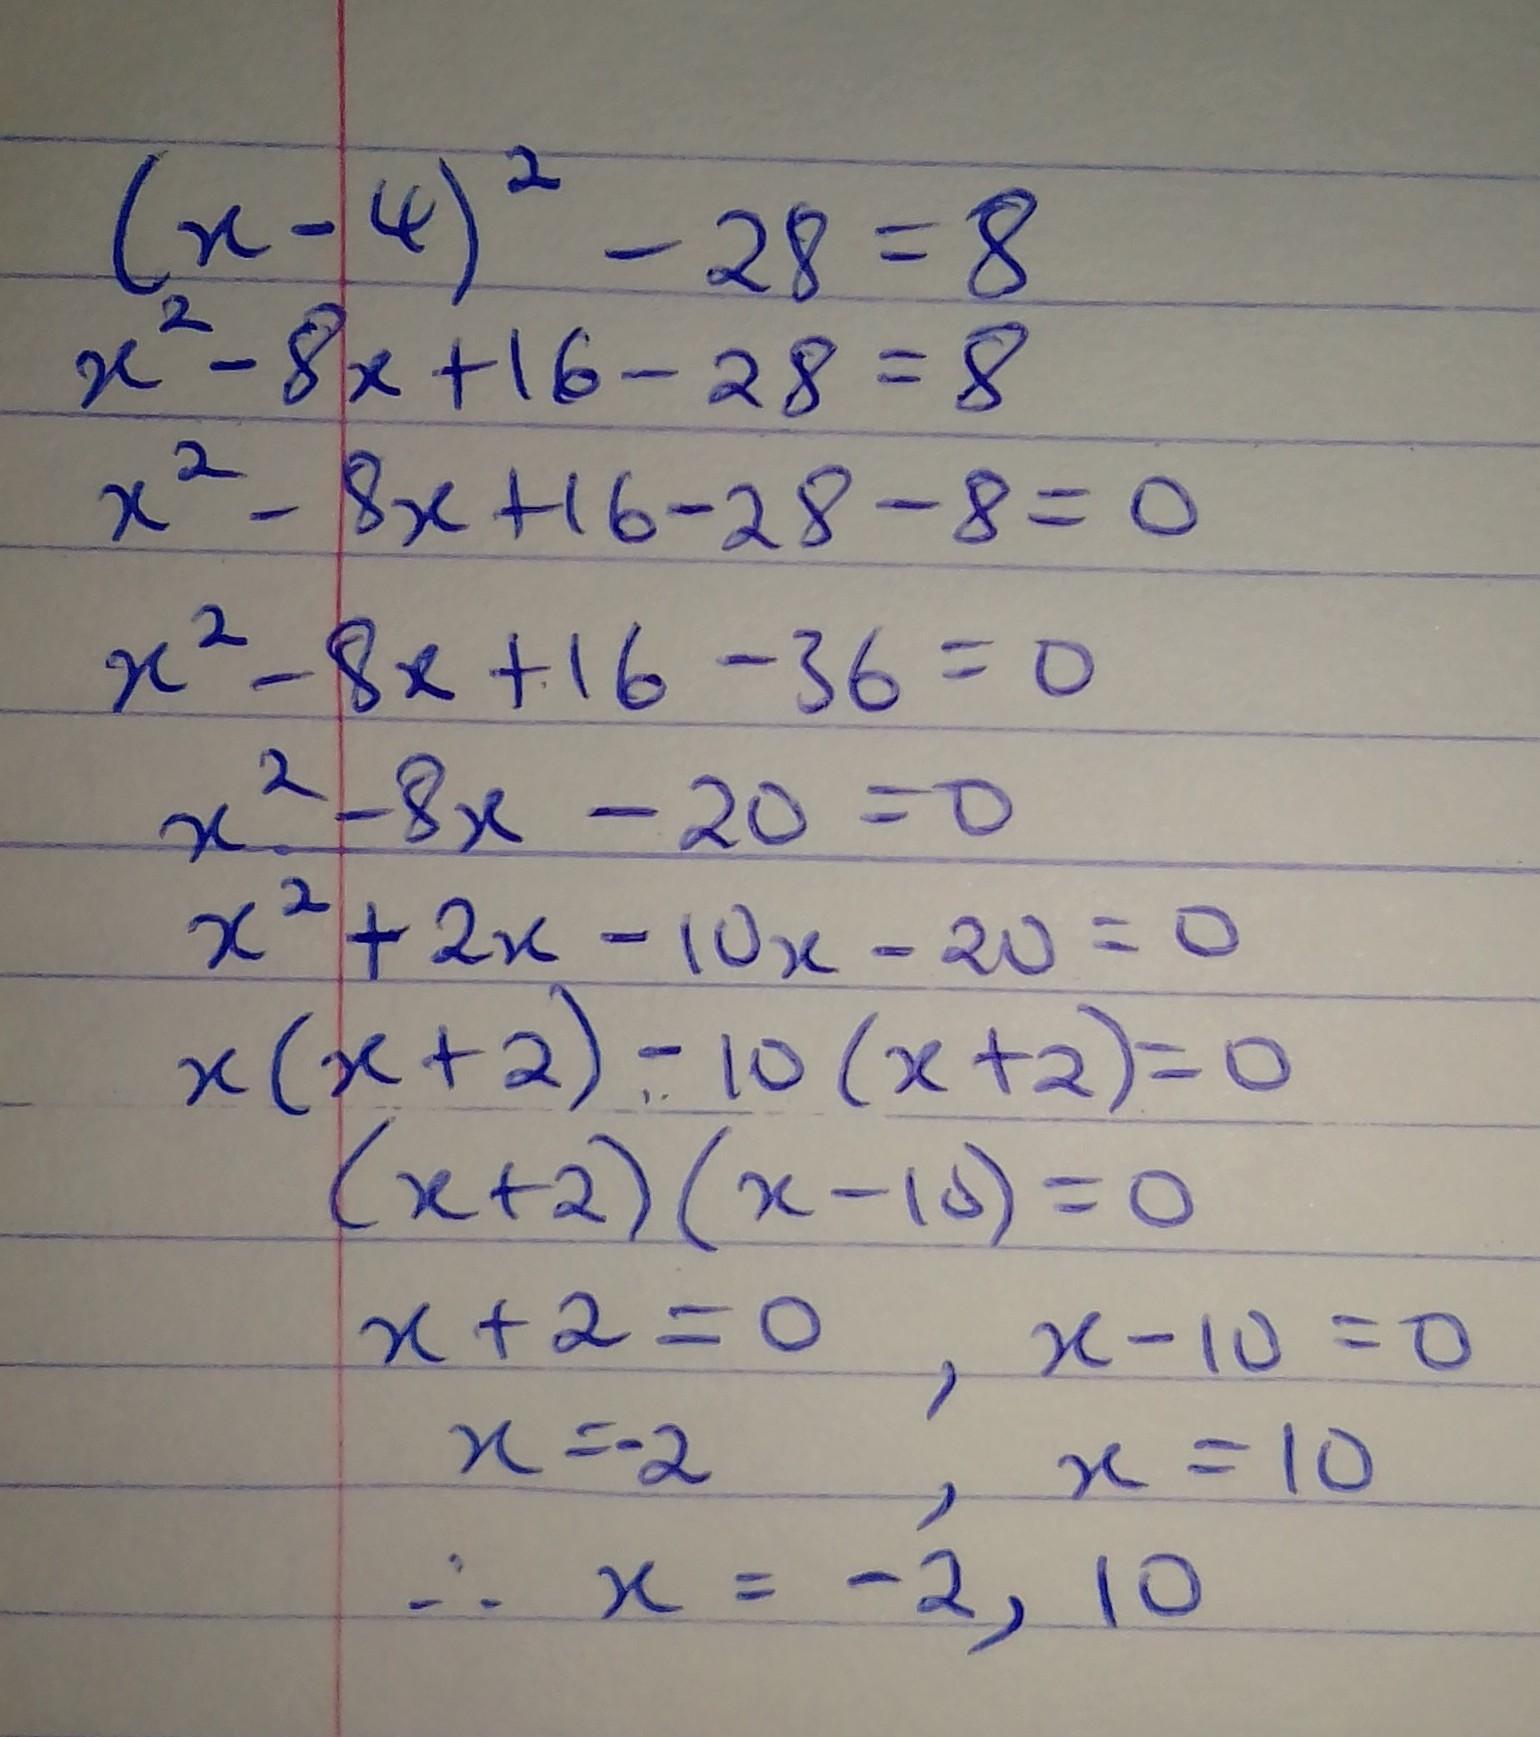 (x-4)² - 28 = 8
x² - 8x + 16 - 28 = 8
x² - 8x + 16 - 28 - 8 = 0
x² - 8x + 16 - 36 = 0
x² - 8x - 20 = 0
x² + 2x - 10x - 20 = 0
x(x+2) - 10(x+2) = 0
(x+2)(x-10) = 0
x + 2 = 0 , x - 10 = 0
x = -2 , x = 10
∴ x = -2, 10